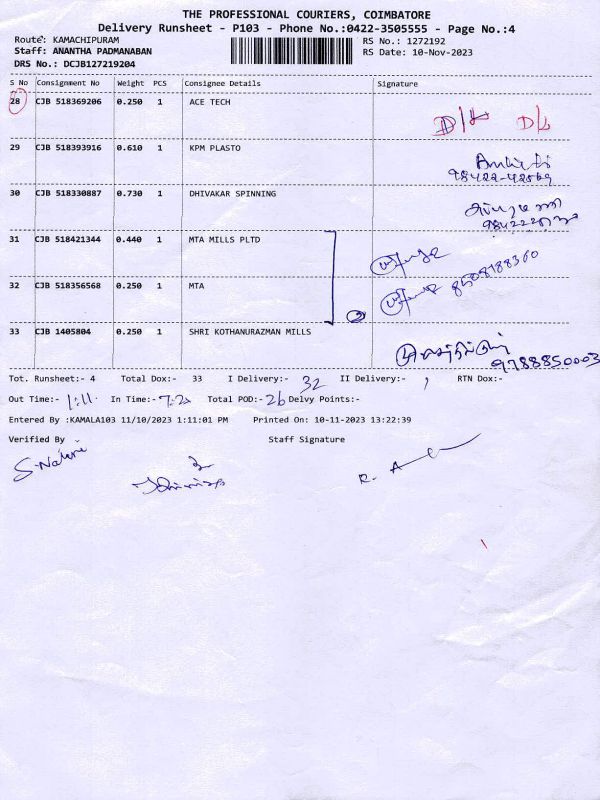 THE PROFESSIONAL COURIERS, COIMBATORE
Delivery Runsheet - P103 - Phone No.:0422-3505555 - Page No.:4
Route: KAMACHIPURAM RS No.: 1272192
Staff: ANANTHA PADMANABAN RS Date: 10-Nov-2023
DRS No.: DCJB127219204
S No Consignment No Weight PCS Consignee Details Signature
28 CJB 518369206 0.250 1 ACE TECH D/L D/L
29 CJB 518393916 0.610 1 KPM PLASTO
30 CJB 518330887 0.730 1 DHIVAKAR SPINNING
31 CJB 518421344 0.440 1 MTA MILLS PLTD
32 CJB 518356568 0.250 1 MTA 8508188360
2
33 CJB 1405804 0.250 1 SHRI KOTHANURAZMAN MILLS
9788850003
Tot. Runsheet:- 4 Total Dox:- 33 I Delivery:- 32 II Delivery:- 1 RTN Dox:-
Out Time:- 1:11 In Time:- 7:20 Total POD:- 26 Delvy Points:-
Entered By :KAMALA103 11/10/2023 1:11:01 PM Printed On: 10-11-2023 13:22:39
Verified By Staff Signature